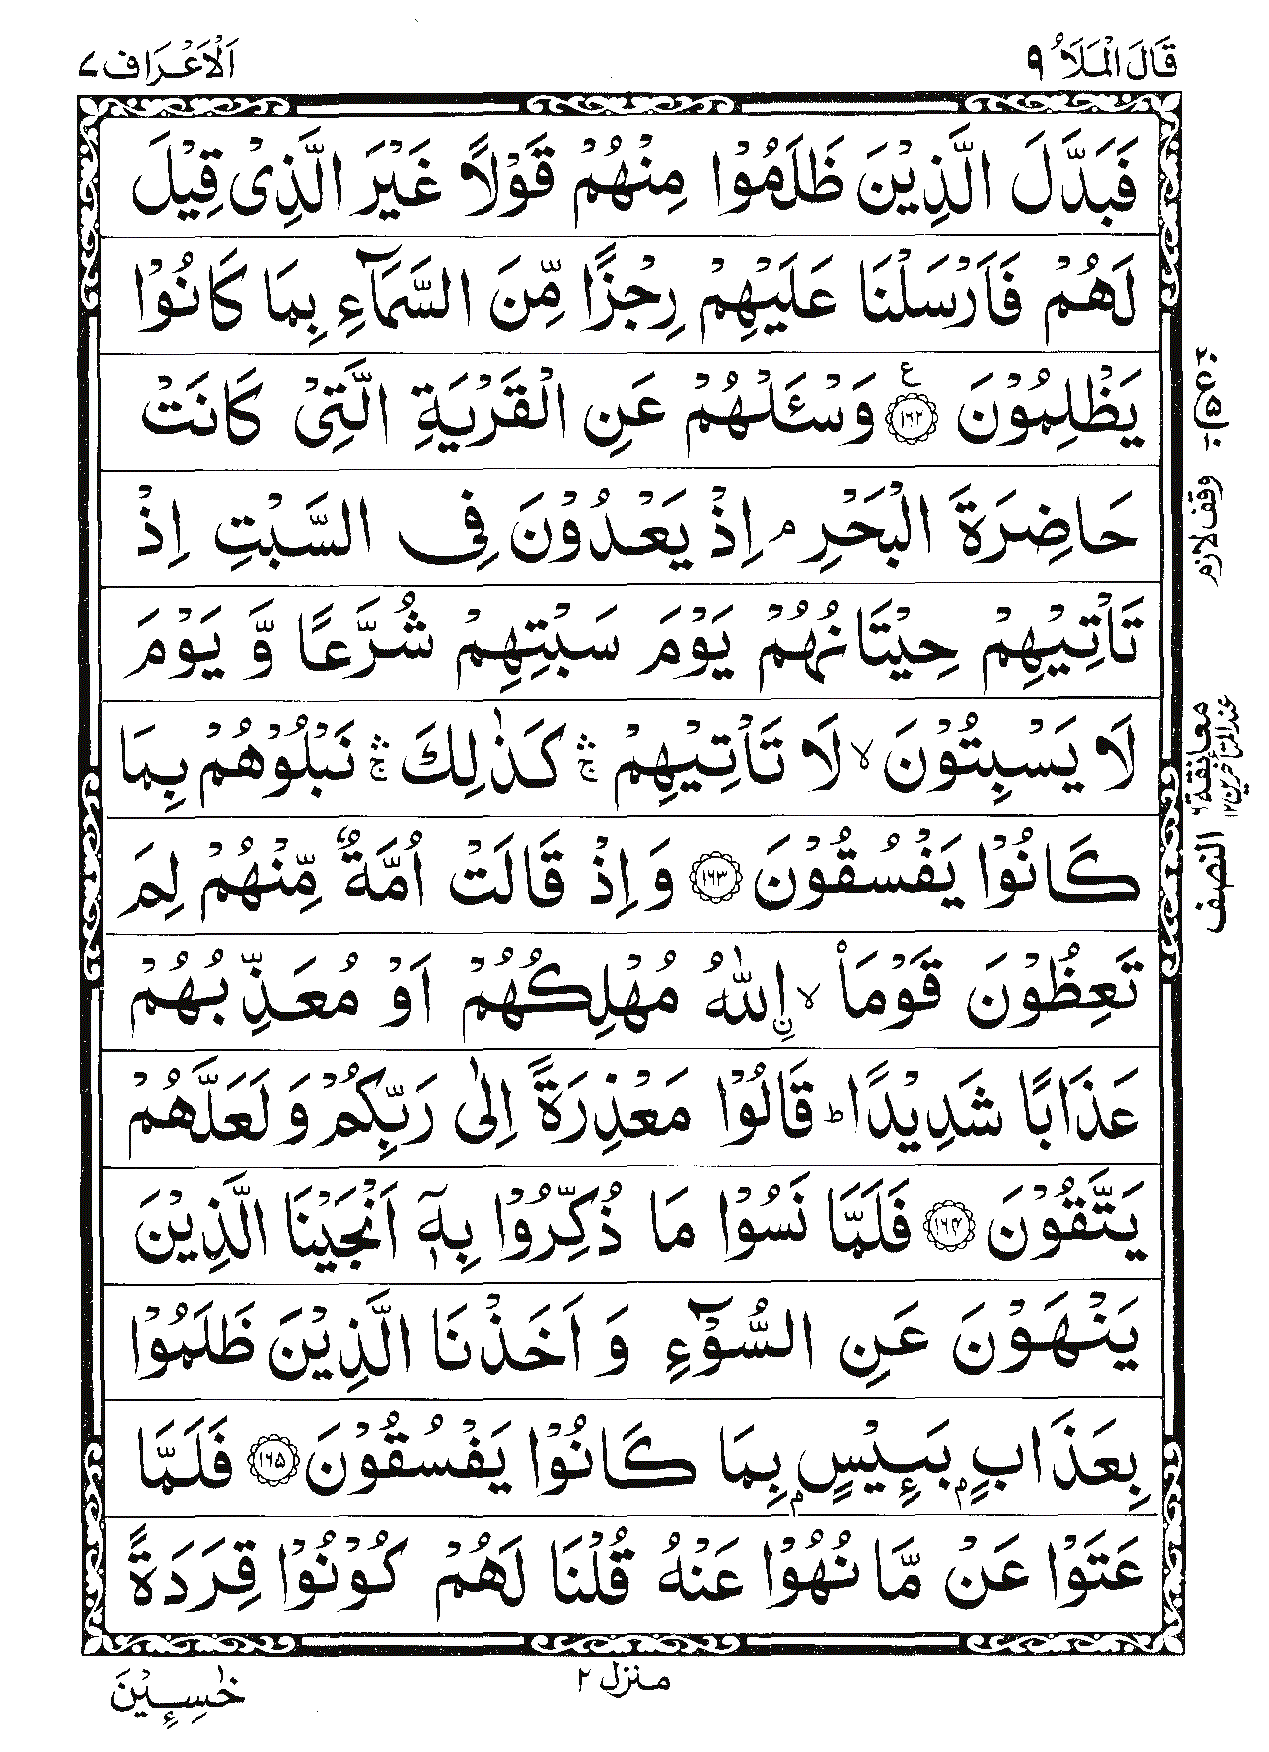 قَالَ الْمَلَاُ ٩
اَلْاَعْرَاف ٧
فَبَدَّلَ الَّذِيْنَ ظَلَمُوْا مِنْهُمْ قَوْلًا غَيْرَ الَّذِىْ قِيْلَ
لَهُمْ فَاَرْسَلْنَا عَلَيْهِمْ رِجْزًا مِّنَ السَّمَآءِ بِمَا كَانُوْا
يَظْلِمُوْنَ ۝١٦٢ ع وَسْئَلْهُمْ عَنِ الْقَرْيَةِ الَّتِىْ كَانَتْ
حَاضِرَةَ الْبَحْرِ ۘ اِذْ يَعْدُوْنَ فِى السَّبْتِ اِذْ
تَأْتِيْهِمْ حِيْتَانُهُمْ يَوْمَ سَبْتِهِمْ شُرَّعًا وَّ يَوْمَ
لَا يَسْبِتُوْنَ ۙ لَا تَأْتِيْهِمْ ۛۚ كَذٰلِكَ ۛۚ نَبْلُوْهُمْ بِمَا
كَانُوْا يَفْسُقُوْنَ ۝١٦٣ وَاِذْ قَالَتْ اُمَّةٌ مِّنْهُمْ لِمَ
تَعِظُوْنَ قَوْمَاْ ۙ اِۨللّٰهُ مُهْلِكُهُمْ اَوْ مُعَذِّبُهُمْ
عَذَابًا شَدِيْدًا ؕ قَالُوْا مَعْذِرَةً اِلٰى رَبِّكُمْ وَ لَعَلَّهُمْ
يَتَّقُوْنَ ۝١٦٤ فَلَمَّا نَسُوْا مَا ذُكِّرُوْا بِهٖۤ اَنْجَيْنَا الَّذِيْنَ
يَنْهَوْنَ عَنِ السُّوْٓءِ وَ اَخَذْنَا الَّذِيْنَ ظَلَمُوْا
بِعَذَابٍۭ بَئِيْسٍۭ بِمَا كَانُوْا يَفْسُقُوْنَ ۝١٦٥ فَلَمَّا
عَتَوْا عَنْ مَّا نُهُوْا عَنْهُ قُلْنَا لَهُمْ كُوْنُوْا قِرَدَةً
٢٠ ع ٥ ١٠
وقف لازم
معانقة ٦
عند المتأخرين ١٢
النصف
منزل ٢
خٰسِـِٕيْنَ